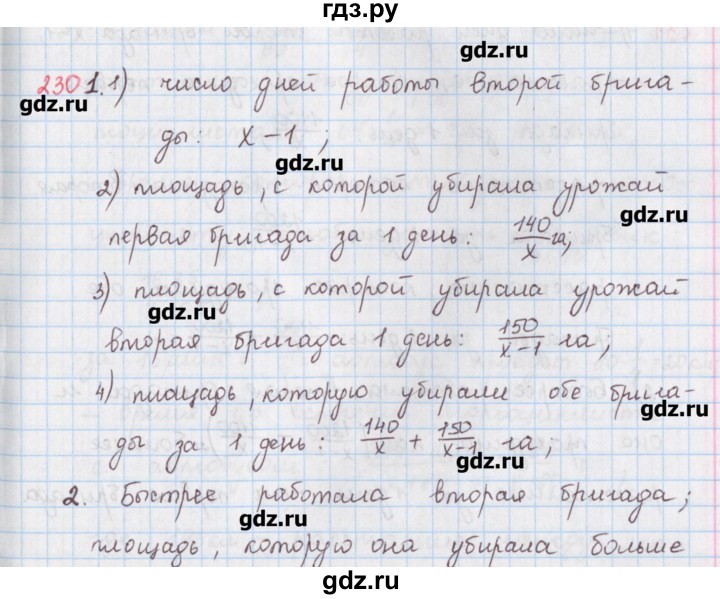 гдз.ру
gdz.ru
230 1. 1) число дней работы второй брига-
gdz.ru
ды: x-1;
gdz.ru
2) площадь, с которой убирала урожай
gdz.ru
первая бригада за 1 день: 140/x га;
3) площадь, с которой убирала урожай
gdz.ru
вторая бригада 1 день: 150/x-1 га;
4) площадь, которую убирали обе брига-
gdz.ru
ды за 1 день: 140/x + 150/x-1 га;
gdz.ru
2. Быстрее работала вторая бригада;
gdz.ru
площадь, которую она убирала больше
gdz.ru